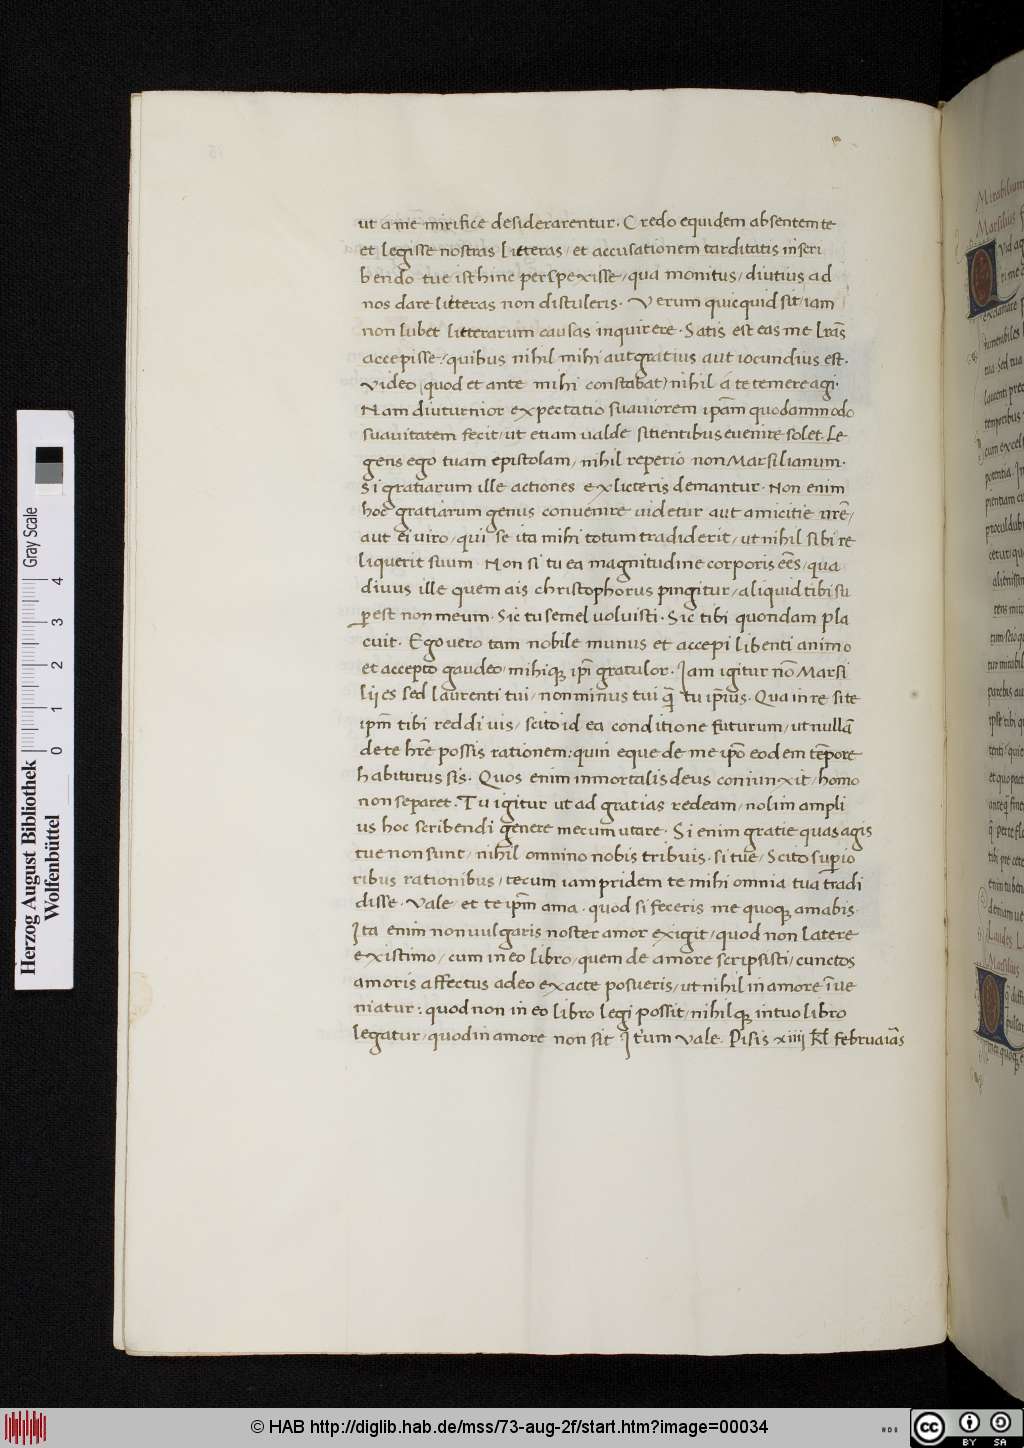 ut a me mirifice desiderarentur. Credo equidem absentem te
et legisse nostras litteras / et accusationem tarditatis in scri
bendo tue isthinc perspexisse / qua monitus / diutius ad
nos dare litteras non distuleris. Verum quicquid sit / iam
non lubet litterarum causas inquirere. Satis est eas me lr̃as
accepisse / quibus nihil mihi aut gratius aut iocundius est.
Video (quod et ante mihi constabat) nihil á te temere agi.
Nam diuturnior expectatio suauiorem ip̃am quodammodo
suauitatem fecit / ut etiam ualde sitientibus euenire solet. Le
gens ego tuam epistolam / nihil reperio non Marsilianum.
Si gratiarum ille actiones ex litteris demantur. Non enim
hoc gratiarum genus conuenire uidetur aut amicitie nr̃e /
aut ei uiro / qui se ita mihi totum tradiderit / ut nihil sibi re
liquerit suum. Non si tu ea magnitudine corporis eẽs / qua
diuus ille quem ais christophorus pingitur / aliquid tibi su
ꝑest non meum. Sic tu semel uoluisti. Sic tibi quondam pla
cuit. Ego uero tam nobile munus et accepi libenti animo
et accepto gaudeo / mihiqꝫ ip̃i gratulor. Iam igitur nõ Marsi
lij es sed laurenti tui / non minus tui q̃ tu ip̃ius. Qua in re si te
ip̃m tibi reddi uis / scito id ea conditione futurum / ut nullã
de te hr̃e possis rationem: quin eque de me ip̃o eodem tẽpore
habiturus sis. Quos enim inmortalis deus coniunxit / homo
non separet. Tu igitur ut ad gratias redeam / nolim ampli
us hoc scribendi genere mecum utare. Si enim gratie quas agis
tue non sunt / nihil omnino nobis tribuis. si tue / Scito suꝑio
ribus rationibus / tecum iampridem te mihi omnia tua tradi
disse. Vale et te ip̃m ama. quod si feceris me quoqꝫ amabis.
Ita enim non uulgaris noster amor exigit / quod non latere
existimo / cum in eo libro / quem de amore scripsisti / cunctos
amoris affectus adeo exacte posueris / ut nihil in amore ĩue
niatur: quod non in eo libro legi possit / nihilqꝫ in tuo libro
legatur / quod in amore non sit Itẽum Vale. Pisis xiiij kl̃ februaiãs
Mirabilium
Marsilius
Laudes L
Marsilius
Herzog August Bibliothek
Wolfenbüttel
Gray Scale
0 1 2 3 4
© HAB http://diglib.hab.de/mss/73-aug-2f/start.htm?image=00034
cc BY SA